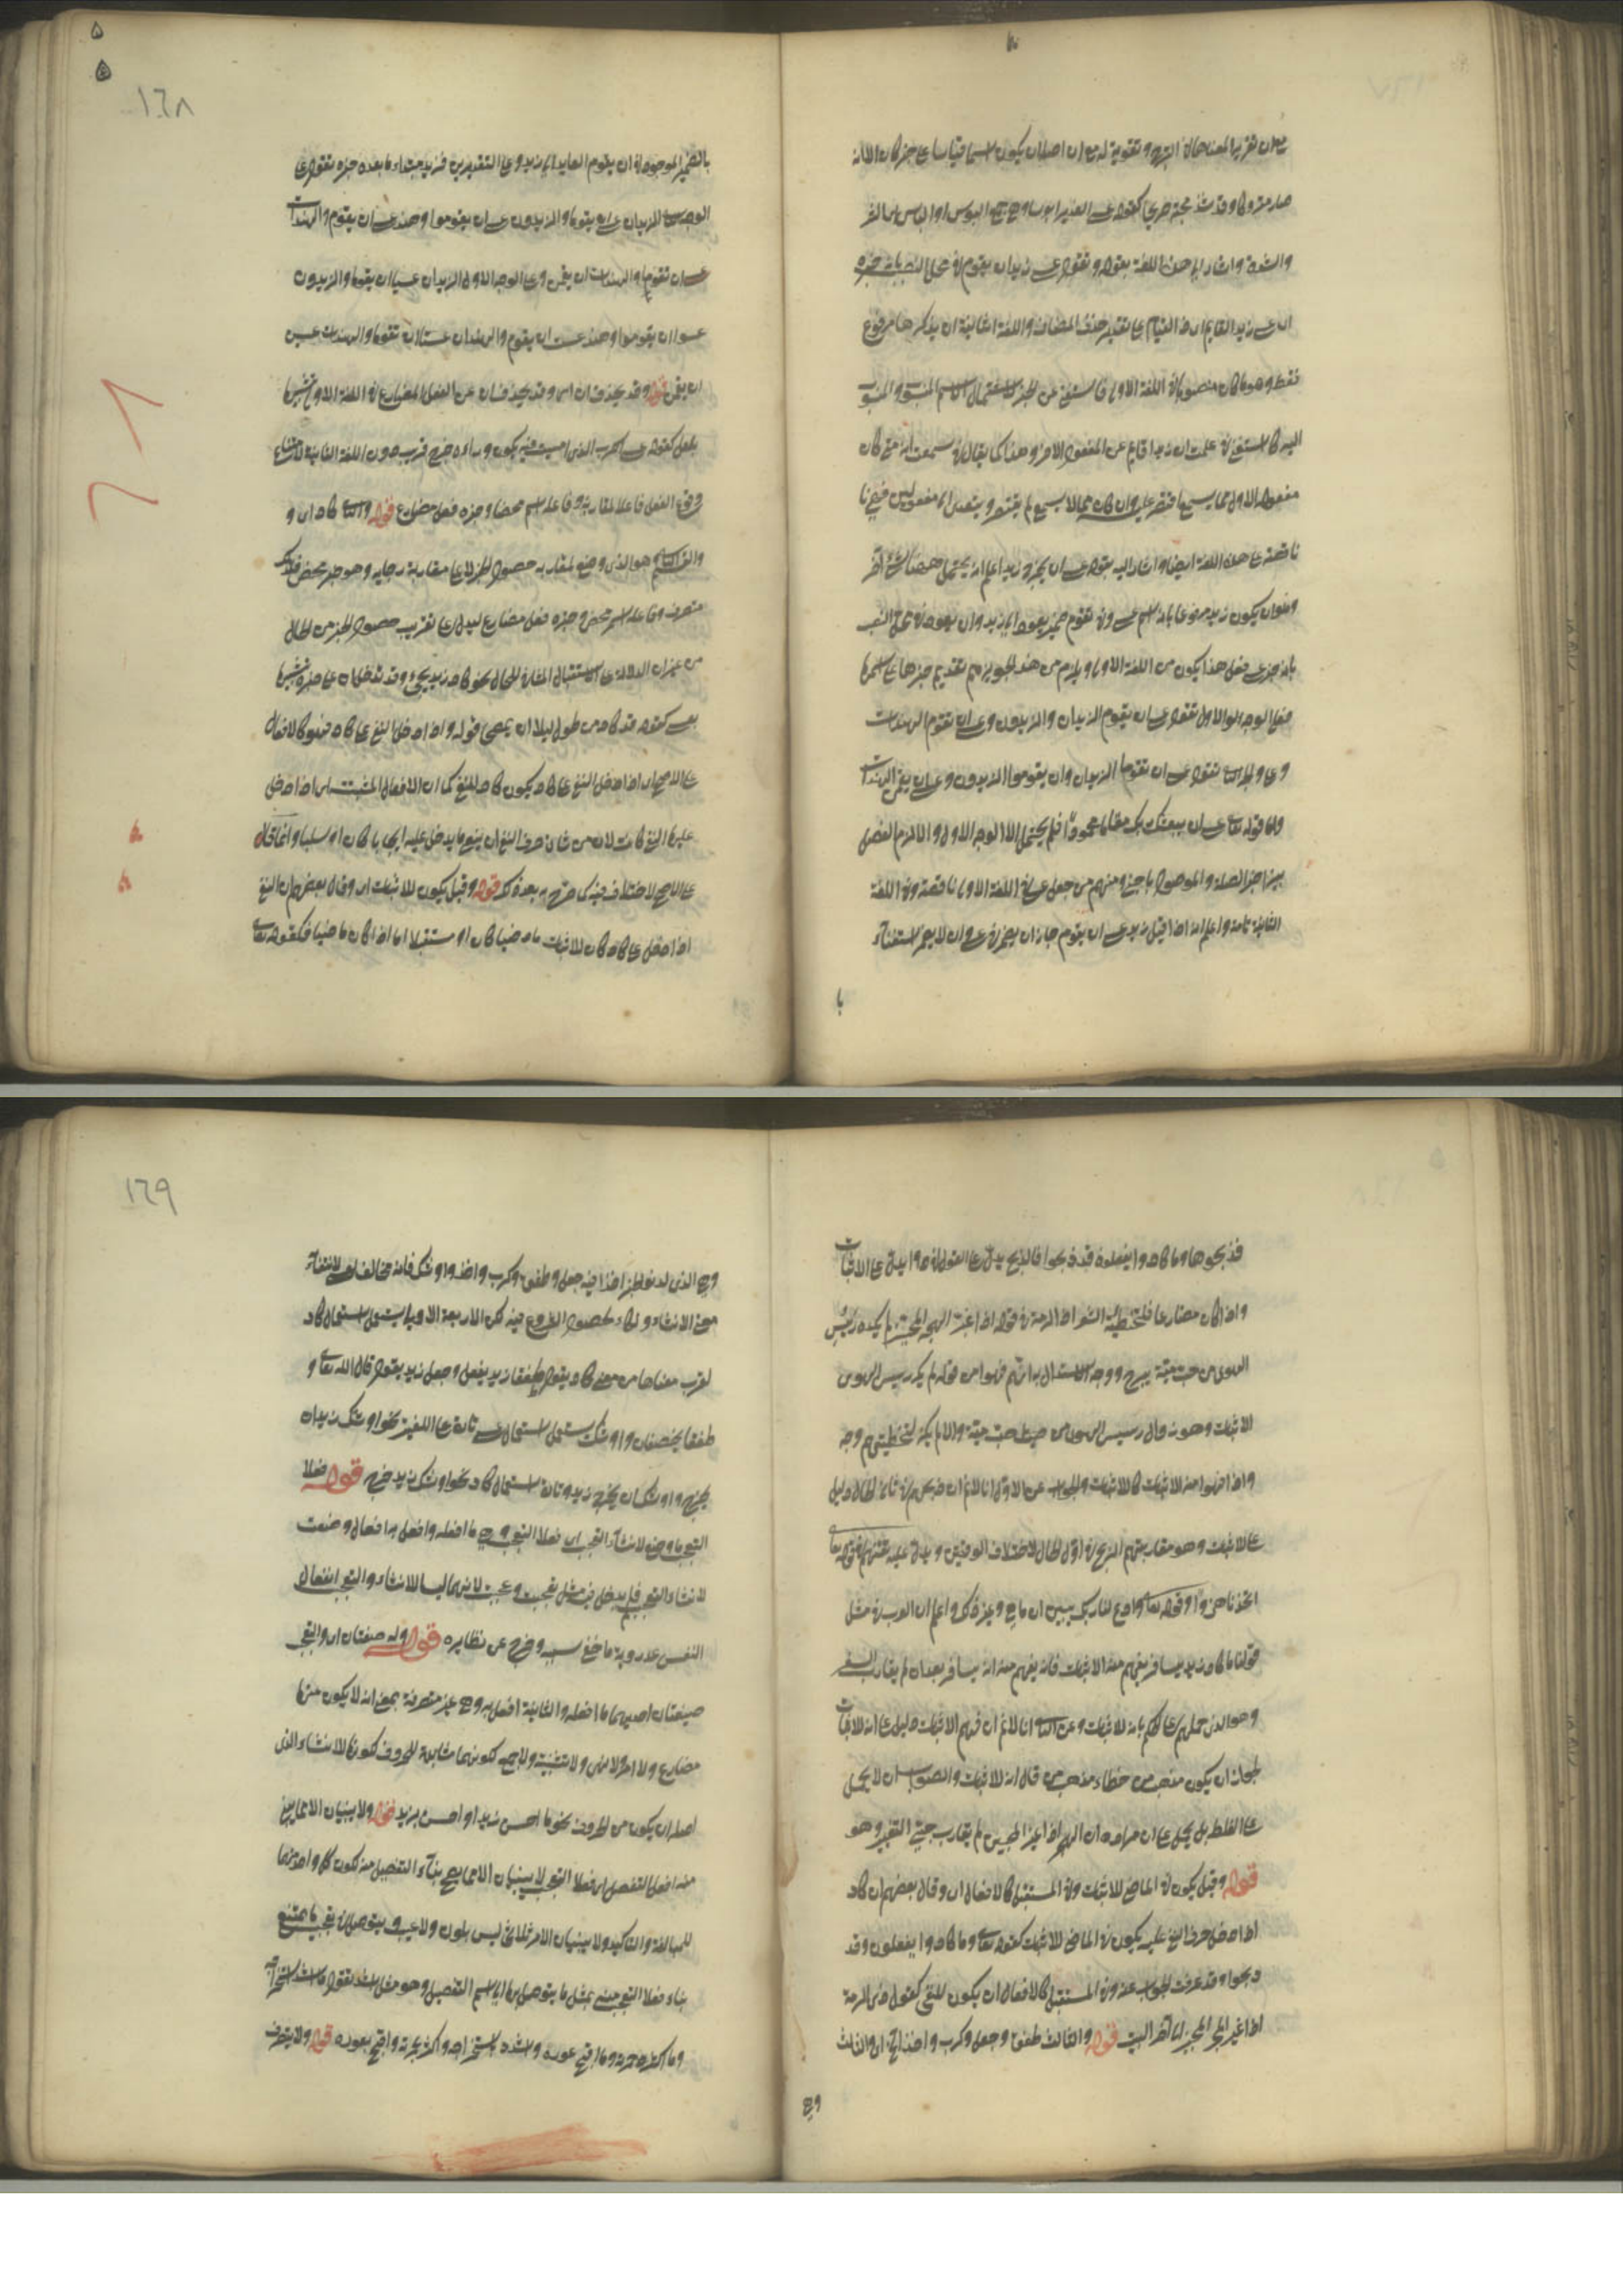 صار متروكا وقد شذ مجيئه صريحا كقولهم عسى الغوير ابوسا وهو جمع البوس او الباس اى الفقر
والشدة واشار الى هذه اللغة بقوله و تقول عسى زيد ان يقوم فى محل النصب بانه خبره
اى عسى زيد القايم اى ذا القيام على تقدير حذف المضاف واللغة الثانية ان يذكر ها مرفوع
فقط وهو ما كان منصوبا فى اللغة الاولى فاستغنى عن الخبر لاشتمال الاسم المنسوب والمنسوب
اليه كما استغنى فى علمت ان زيدا قايم عن المفعول الاخر و هذا كما يقال فى سمعت انه متى كان
مفعوله الاول مما يسمع اقتصر عليه وان كان مما لا يسمع لم يقتصر و يتعدى الى مفعولين
ناقصة على هذه اللغة ايضا واشار اليه بقوله عسى ان يخرج زيد اعلم انه يحتمل ههنا
وهو ان يكون زيد مرفوعا بانه اسم عسى وفى تقوم ضمير يعود الى زيد وان يعود فى محل النصب
بانه خبر عسى فعلى هذا يكون من اللغة الاولى و يلزم من هذا تجويزهم تقديم خبرها على اسمها
فعلى الوجه الاول تقول عسى ان يقوم الزيدان والزيدون وعسى ان تقوم الهندات
وعلى الوجه الثانى تقول عسى ان يقوما الزيدان وان يقوموا الزيدون وعسى ان يقمن الهندات
واما قوله تعالى عسى ان يبعثك ربك مقاما محمودا فلم يحتمل الا الوجه الاول والا لزم الفصل
بين اجزاء الصلة والموصول باجنبى ومنهم من جعل عسى فى اللغة الاولى ناقصة وفى اللغة
الثانية تامة واعلم انه اذا قيل زيد عسى ان يقوم جاز ان يضمر فى عسى وان لا يضمر استغناء
با
١٦٨
بالضمير الموجود فى ان يقوم العايد الى زيد وعلى التقديرين فزيد مبتداء ما بعده خبره تقول على
الوجه الثانى الزيدان عسى ان يقوما والزيدون عسى ان يقوموا وهند عسى ان تقوم والهندات
عسى ان يقمن وعلى الوجه الاول الزيدان عسيا ان يقوما والزيدون
عسوا ان يقوموا وهند عست ان تقوم والهندان عستا ان تقوما والهندات عسين
ان يقمن قوله وقد يحذف ان اى وقد يحذف ان عن الفعل المضارع فى اللغة الاولى تشبيها
بلعل كقوله عسى الكرب الذى امسيت فيه يكون وراءه فرج قريب دون اللغة الثانية لامتناع
وقوع الفعل فاعلا لمقاربة وفاعله اسم محضا وخبره فعل مضارع قوله والثانى كاد اى و
والقسم الثانى هو الذى وضع لمقاربة حصول الخبر لا على مقاربة رجايه وهو خبر محض فلذلك
متصرف وفاعله اسم محض وخبره فعل مضارع ليدل على تقريب حصول الخبر من الحال
من غير ان الدلالة على الاستقبال المنافى للحال نحو كاد زيد يجئ وقد تدخل ان على خبره تشبيها
بعسى كقوله قد كاد من طول البلا ان يمصحا قوله واذا دخل النفى على كاد فهو كالافعال
على الاصح اى اذا دخل النفى على كاد يكون كاد للنفى كما ان الافعال المثبتة اذا دخل
عليها النفى كانت لان من شان حرف النفى ان ينفى ما يدخل عليه ايجابا كان او سلبا وانما قال
على الاصح لاختلاف فيه كما صرح به بعد ذلك قوله وقيل يكون للاثبات اى وقال بعضهم ان النفى
اذا دخل على كاد كان للاثبات ماضيا كان او مستقبلا اما اذا كان ماضيا فكقوله تعالى
فذبحوها وما كادوا يفعلون وقد ذبحوا فالذبح يدل على
واذا كان مضارعا فلتخطئة الشعراء ذا الرمة فى قوله اذا غير الهجر المحبين لم يكد رسيس
الهوى من حب مية يبرح ووجه الاستدلال به انهم فهموا من قوله لم يكد رسيس الهوى
الاثبات وهو زوال رسيس الهوى من حب مية والا لم يكن لتخطئتهم وجه
واذا فهموا منه الاثبات كان للاثبات والجواب عن الاول انا لا نم ان ذبحهم فى ثانى الحال دليل
على الاثبات وهو مقاربتهم الذبح فى اول الحال لاختلاف الوقتين ويدل عليه تعنتهم فى قوله تعالى
اتتخذنا هزوا وقوله تعالى ادع لنا ربك يبين لنا ما هى وغير ذلك واعلم ان العرب فى مثل
قولنا ما كاد زيد يسافر يفهم منه الاثبات فانه يفهم منه انه يسافر بعد ان لم يقارب السفر
وهو الذى حملهم على الحكم بانه للاثبات وعن الثانى انا لا نم ان فهم الاثبات دليل على انه للاثبات
لجواز ان يكون مذهب من خطاء مذهب من قال انه للاثبات والصواب ان لا يحمل
على الغلط بل يحمل على ان مراده ان الهجر اذا غير المحبين لم يقارب حبى التغير وهو
قوله وقيل يكون فى الماضى للاثبات وفى المستقبل كالافعال اى وقال بعضهم ان كاد
اذا دخل حرف النفى عليه يكون فى الماضى للاثبات كقوله تعالى وما كادوا يفعلون وقد
ذبحوا وقد عرفت الجواب عنه وفى المستقبل كالافعال ان يكون للنفى كقول ذى الرمة
اذا غير الهجر المحبين الى آخر البيت قوله والثالث طفق وجعل وكرب واخذ اى والثالث
وهى
١٦٩
وهى الذى لدنو الخبر اخذا فيه جعل وطفق وكرب واخذ واوشك فانه مخالف لعسى لانتفاء
معنى الانشاء ولكاد لحصول الشروع فيه لكن الاربعة الاولى يستعمل استعمال كاد
لقرب معناها من معنى كاد يقول طفق زيد يفعل وجعل زيد يقول قال الله تعالى و
طفقا يخصفان واوشك يستعمل استعمال عسى تارة على اللغتين نحو اوشك زيد ان
يخرج واوشك ان يخرج زيد وتارة استعمال كاد نحو اوشك زيد يخرج قوله فعلا
التعجب ما وضع لانشاء التعجب اى فعلا التعجب وهى ما افعله وافعل به افعال وضعت
لانشاء التعجب فلم يدخل فيه مثل تعجبت وعجبت لانهما ليسا للانشاء والتعجب انفعال
النفس عند روية ما خفى سببه وخرج عن نظايره قوله وله صيغتان اى والتعجب
صيغتان احديهما ما افعله والثانية افعل به وهى غير متصرفة بمعنى انه لا يكون منها
مضارع ولا امر ولا نهى ولا تثنية ولا جمع لكونهما مشابهة للحروف لكونها للانشاء الذى
اصله ان يكون من الحروف نحو ما احسن زيدا او احسن بزيد قوله ولا يبنيان الا مما يبنى
منه افعل التفضيل اى فعلا التعجب لا يبنيان الا مما يصح بناء التفضيل منه لكون كل واحد منهما
للمبالغة والتاكيد ولا يبنيان الا من ثلاثى ليس بلون ولا عيب ويتوصل فى تعجب ما يمتنع
بناء فعلا التعجب منه بمثل ما يتوصل به الى اسم التفضيل وهو مثل اشد تقول ما اشد استخراجه
وما اكثر دحرجته وما اقبح عوره واشدد باستخراجه واكثر بدحرجته واقبح بعوره قوله ولا يتصرف